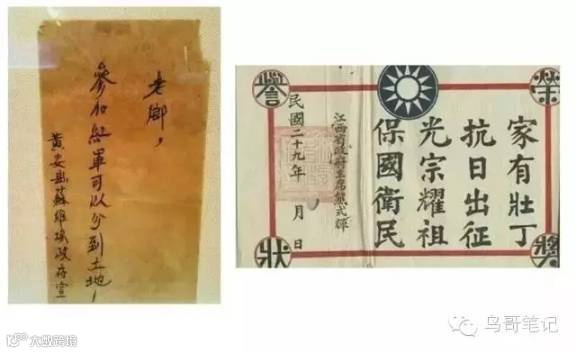 老鄉，
參加紅軍可以分到土地！
黃安縣蘇維埃政府宣
榮
譽
獎
狀
家有壯丁
抗日出征
光宗耀祖
保國衛民
江西省政府主席熊式輝
民國二十九年 月 日
鸟哥笔记
大数跨境